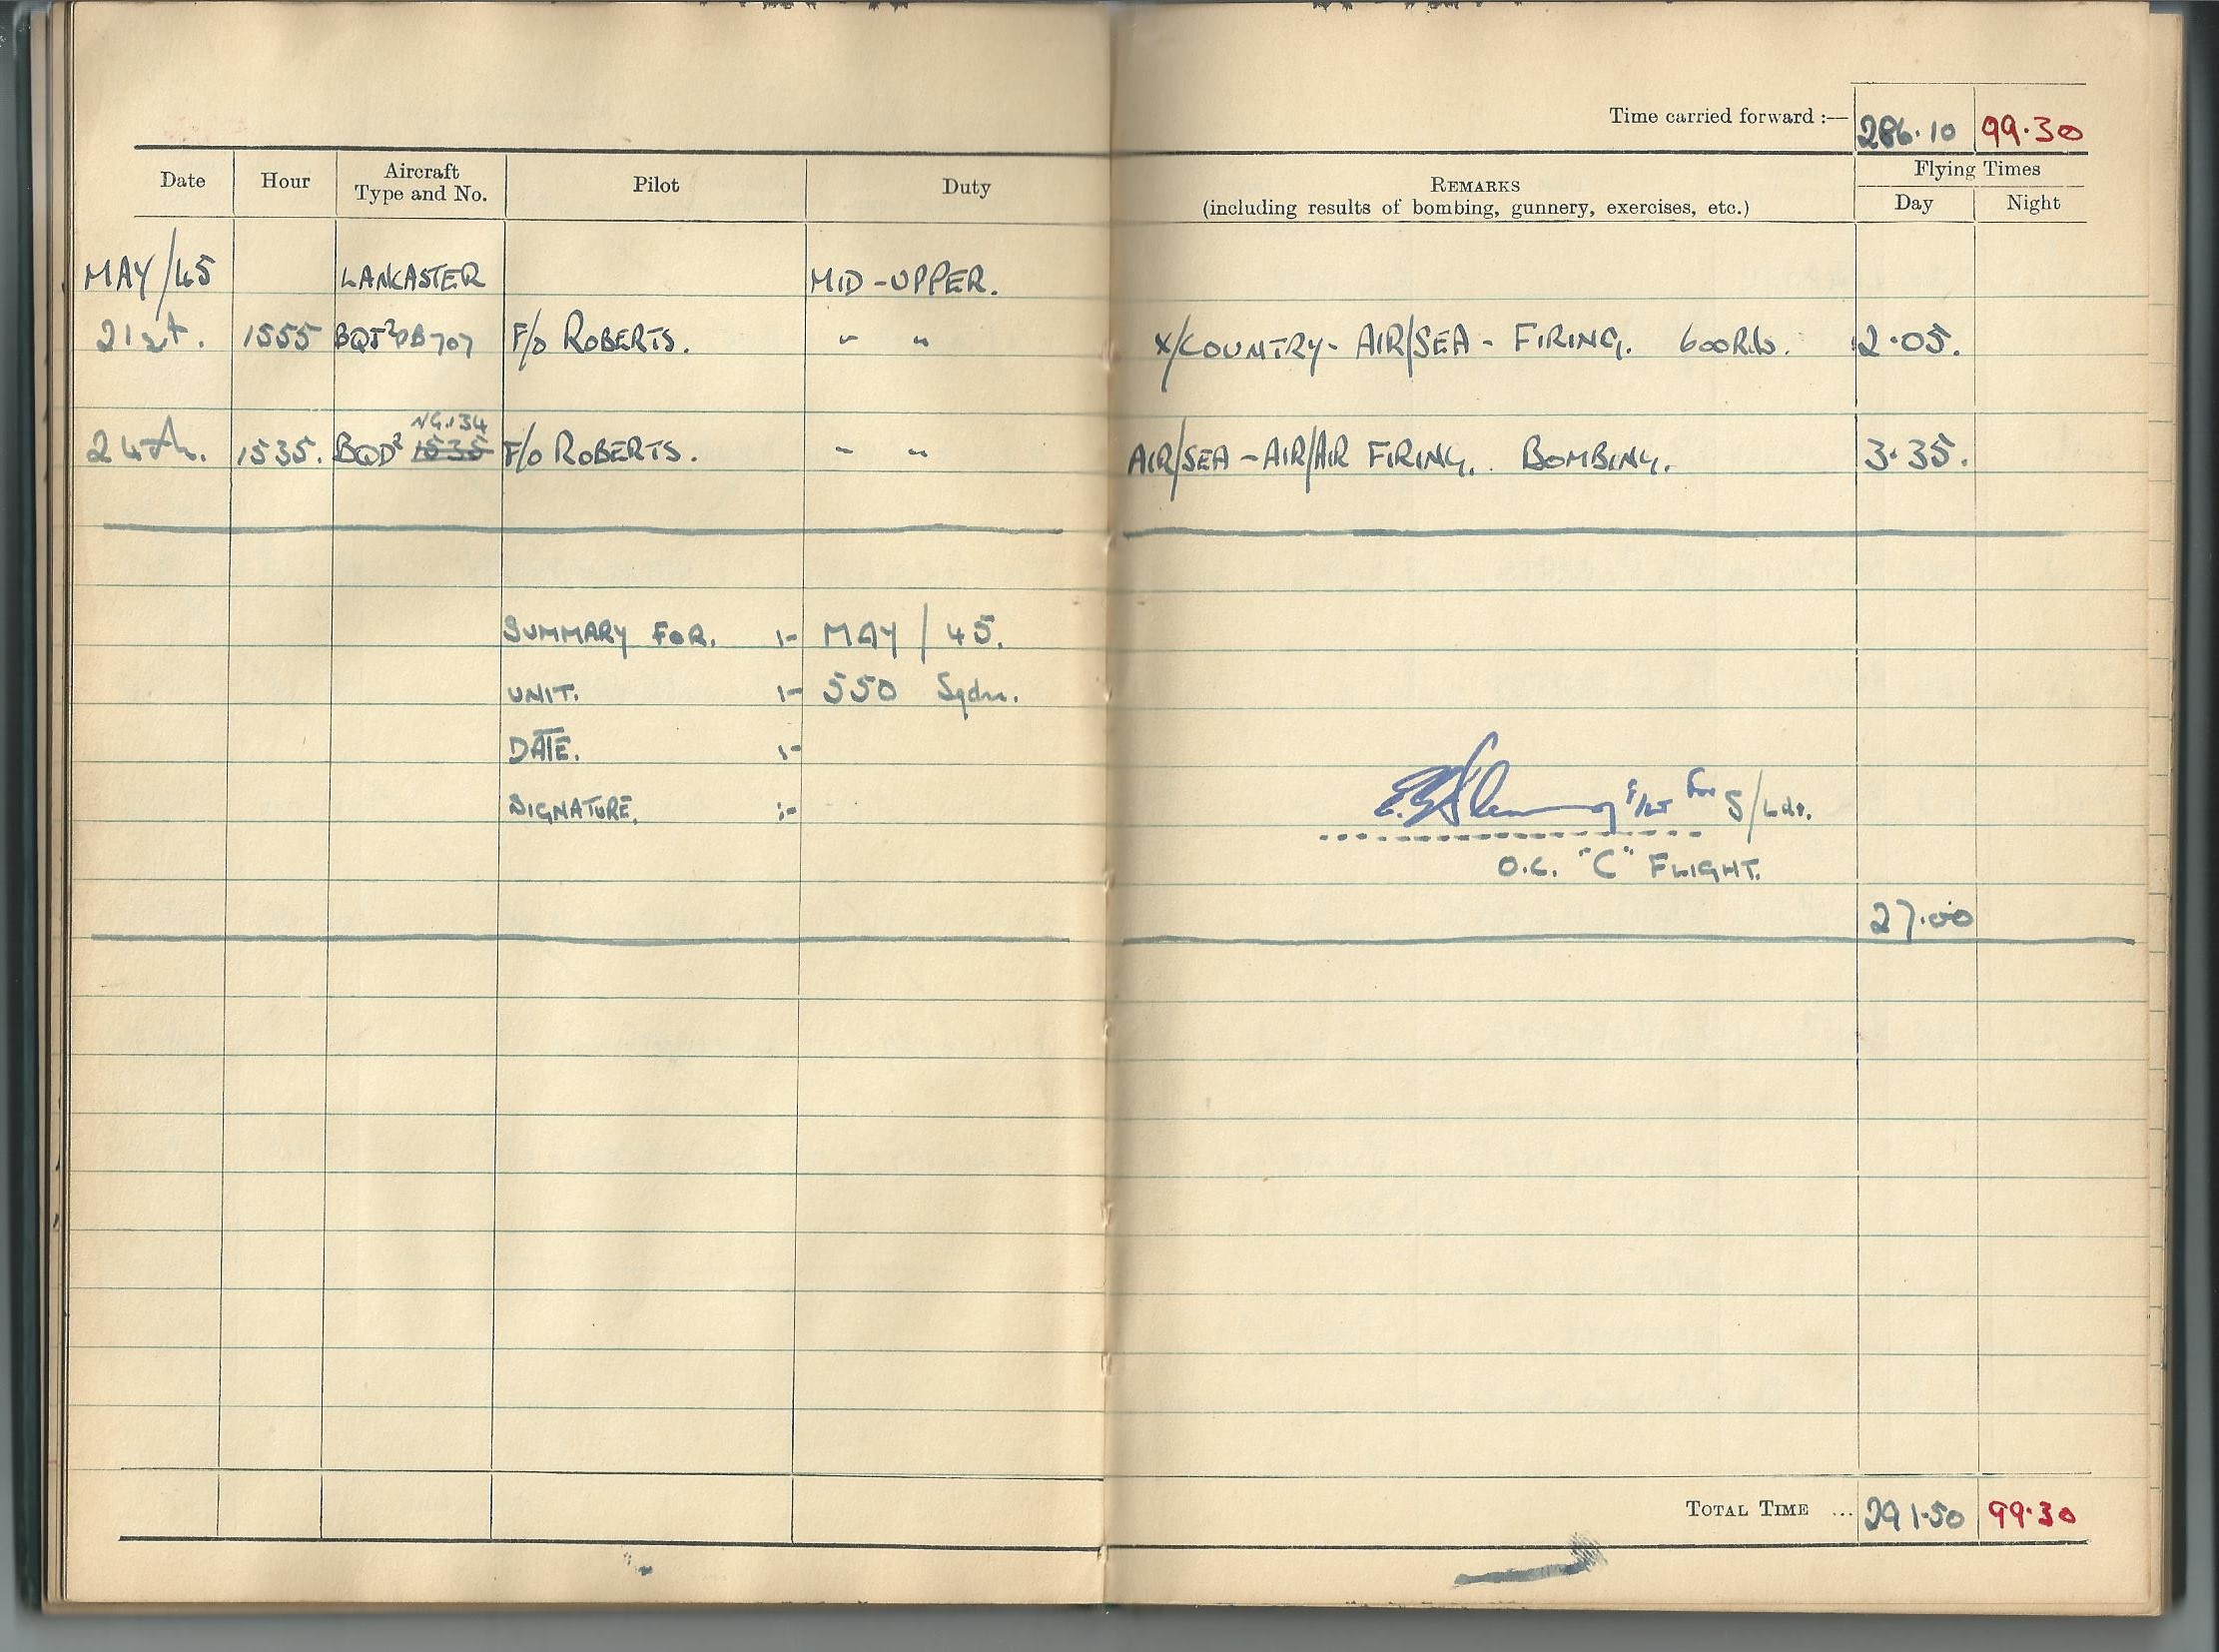 Time carried forward :— 286.10 99.30
Date Hour Aircraft Type and No. Pilot Duty REMARKS (including results of bombing, gunnery, exercises, etc.) Flying Times Day Night
MAY/45 LANCASTER MID-UPPER.
21st. 1555 BQT² PB707 F/O ROBERTS. " " X/COUNTRY - AIR/SEA - FIRING. 600Rds. 2.05.
NG.134
24th. 1535. BQD² 1535 F/O ROBERTS. " " AIR/SEA - AIR/AIR FIRING. BOMBING. 3.35.
SUMMARY FOR. :- MAY / 45.
UNIT. :- 550 Sqdn.
DATE. :-
SIGNATURE. :- F/Lt for S/Ldr.
O.C. "C" FLIGHT.
27.00
TOTAL TIME ... 291.50 99.30